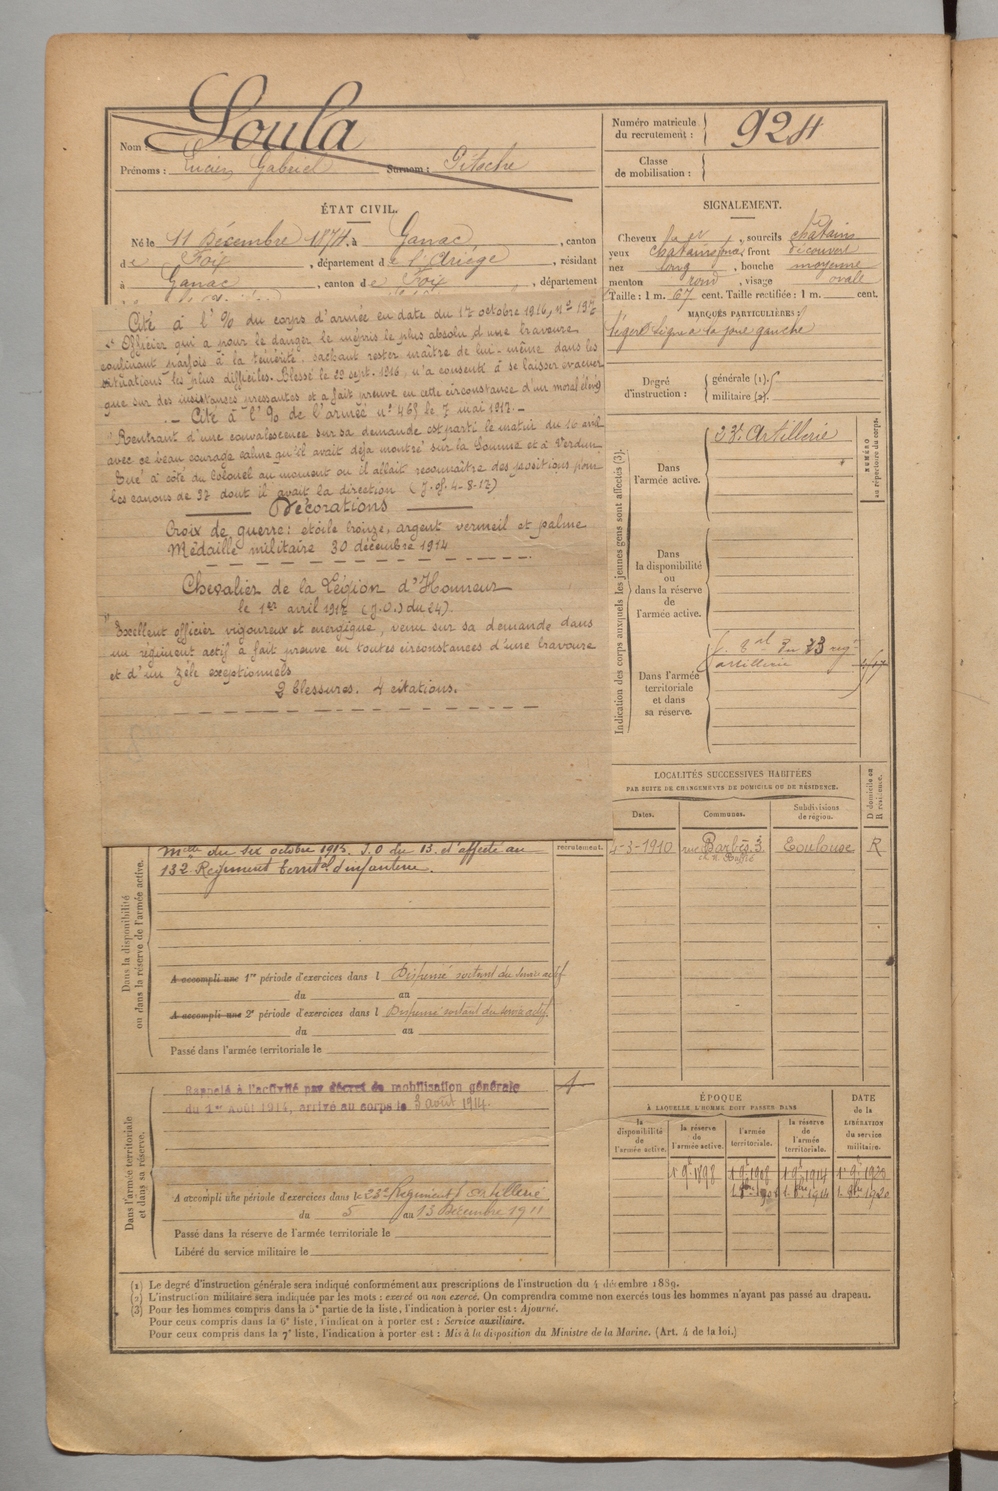 Nom : Soula
Prénoms : Lucien Gabriel Surnom : Pitoche
Numéro matricule
du recrutement : 924
Classe
de mobilisation :
ÉTAT CIVIL.
Né le 11 Décembre 1874, à Ganac, canton
de Foix, département de l'Ariège, résidant
à Ganac, canton de Foix, département
SIGNALEMENT.
Cheveux , sourcils châtains
yeux châtains , front découvert
nez long, bouche moyenne
menton rond, visage ovale
Taille : 1 m. 67 cent. Taille rectifiée : 1 m. cent.
MARQUES PARTICULIÈRES :
légère à la joue gauche
Degré
d'instruction :
générale (1).
militaire (2).
Cité à l'% du corps d'armée en date du 17 octobre 1916, Nº 197
"Officier qui a pour le danger le mépris le plus absolu, d'une bravoure
confinant parfois à la témérité, sachant rester maître de lui-même dans les
situations les plus difficiles. Blessé le 29 sept. 1916, n'a consenti à se laisser évacuer
que sur des insistances pressantes et a fait preuve en cette circonstance d'un moral élevé
.- Cité à l'% de l'armée nº 463 le 7 mai 1917.-
"Rentrant d'une convalescence sur sa demande est parti le matin du 16 avril
avec ce beau courage calme qu'il avait déjà montré sur la Somme et à Verdun
Tué à côté du Colonel au moment où il allait reconnaître des positions pour
les canons de 37 dont il avait la direction (J. of. 4-8-17)
Décorations
Croix de guerre : étoile bronze, argent vermeil et palme
Médaille militaire 30 décembre 1914
Chevalier de la Légion d'Honneur
le 1er avril 1917 (J.O.) du 24).
"Excellent officier vigoureux et énergique, venu sur sa demande dans
un régiment actif a fait preuve en toutes circonstances d'une bravoure
et d'un zèle exceptionnels
2 blessures. 4 citations.
Indication des corps auxquels les jeunes gens sont affectés (3).
NUMÉRO
au répertoire du corps.
Dans
l'armée active.
23e Artillerie
Dans
la disponibilité
ou
dans la réserve
de
l'armée active.
Dans l'armée
territoriale
et dans
sa réserve.
du 23 reg
artillerie
LOCALITÉS SUCCESSIVES HABITÉES
PAR SUITE DE CHANGEMENTS DE DOMICILE OU DE RÉSIDENCE.
Dates.
Communes.
Subdivisions
de région.
D domicile ou
R résidence.
4-3-1910 rue Barbès 3 Toulouse R
Dans la disponibilité
ou dans la réserve de l'armée active.
recrutement.
Mlle du six octobre 1915. J.O du 13. et affecté au
132 Régiment territal d'infanterie.
A accompli une 1re période d'exercices dans l Dispensé sortant du service actif
du au
A accompli une 2e période d'exercices dans l Dispensé sortant du service actif.
du au
Passé dans l'armée territoriale le
Dans l'armée territoriale
et dans sa réserve.
Rappelé à l'activité par décret de mobilisation générale
du 1er Août 1914, arrivé au corps le 3 août 1914.
A accompli une période d'exercices dans le 23e Régiment d'artillerie
du 5 au 13 Décembre 1911
Passé dans la réserve de l'armée territoriale le
Libéré du service militaire le
ÉPOQUE
À LAQUELLE L'HOMME DOIT PASSER DANS
DATE
de la
LIBÉRATION
du service
militaire.
la
disponibilité
de
l'armée active.
la réserve
de
l'armée active.
l'armée
territoriale.
la réserve
de
l'armée
territoriale.
1 9bre 1898 1 9bre 1908 1 9bre 1914 1 9bre 1920
(1) Le degré d'instruction générale sera indiqué conformément aux prescriptions de l'instruction du 4 décembre 1889.
(2) L'instruction militaire sera indiquée par les mots : exercé ou non exercé. On comprendra comme non exercés tous les hommes n'ayant pas passé au drapeau.
(3) Pour les hommes compris dans la 5e partie de la liste, l'indication à porter est : Ajourné.
Pour ceux compris dans la 6e liste, l'indication à porter est : Service auxiliaire.
Pour ceux compris dans la 7e liste, l'indication à porter est : Mis à la disposition du Ministre de la Marine. (Art. 4 de la loi.)